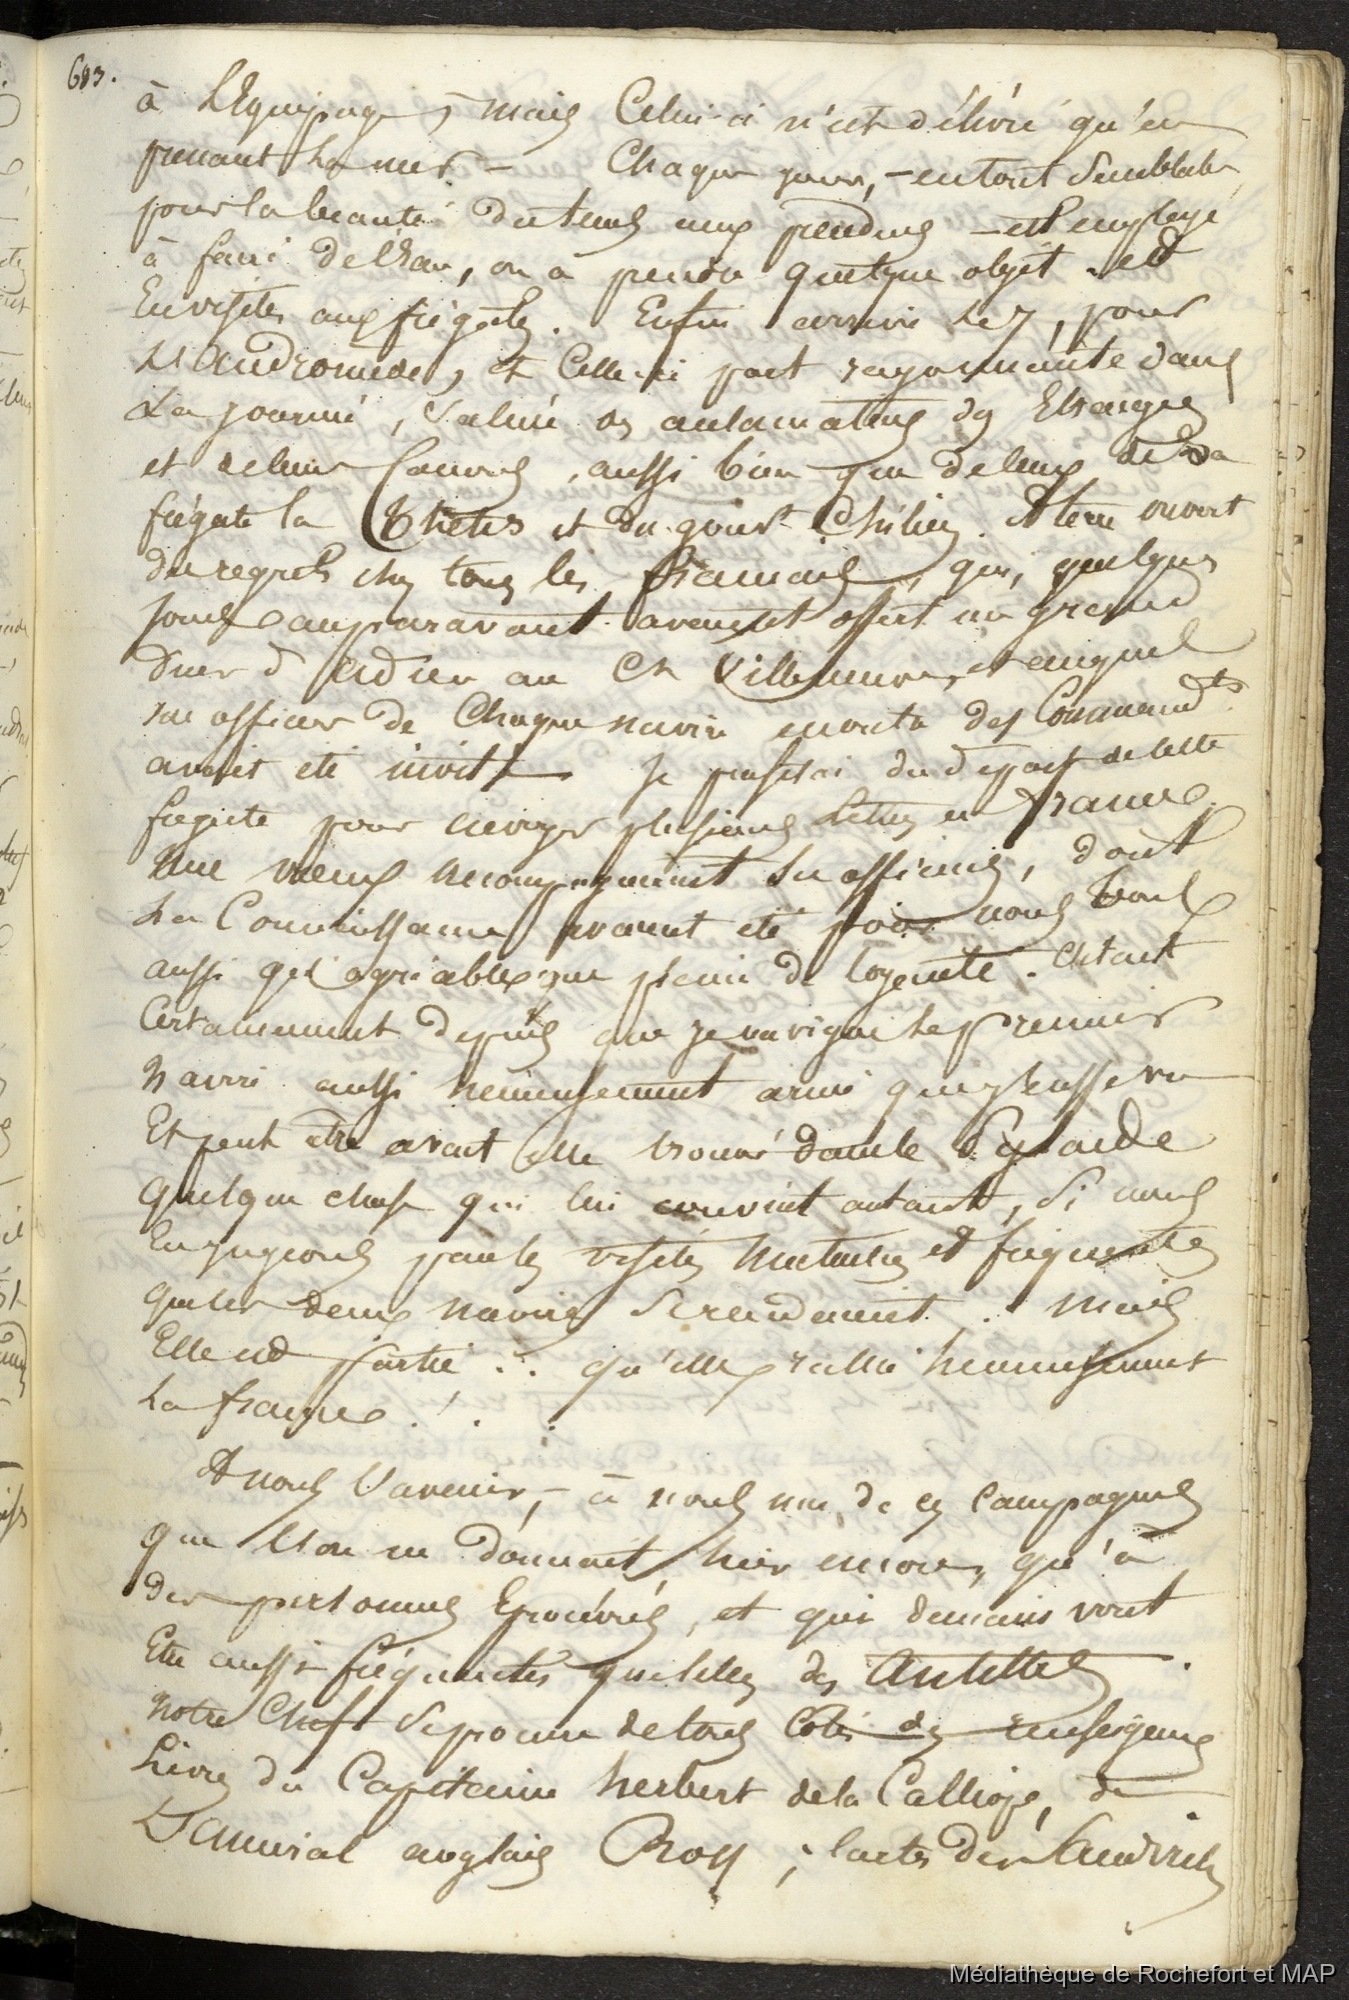 603.
à L'Equipage, mais Celui-ci n'est délivré qu'en
prenant la mer — Chaque jour, — en tout semblable
pour la beauté du tems aux précédens — est employé
à faire de l'Eau, on a perdu quelque objet. et
En visites aux frégates. Enfin arrive le 7, pour
L'Andromede, et Celle-ci part rayonnante dans
La journée, saluée des acclamations des Equipages
et de leurs Canons, aussi bien que de ceux de la
frégate la Thétis et du gouvt Chilien. A terre ouvert
des regrets chez tous les français, qui, quelques
jours auparavant avaient offert un grand
diner d'adieu au Cn Villeneuve, et auquel
un officier de Chaque navire en outre des Commandts
avait été invité. Je profitai du départ de cette
frégate pour envoyer plusieurs Lettres en france.
Nos vœux accompagnaient les officiers, dont
La Connaissance avaient été pour nous tous
aussi agréable que pleine de loyauté. C'était
Certainement depuis que je navigue le premier
Navire aussi heureusement armé que j'eusse vu
Et peut être avait elle trouvé dans le Pylade
Quelque chose qui lui convint autant, si nous
En jugeons par les visites mutuelles et fréquentes
que les deux navires se rendaient. . Mais
Elle est partie . . . qu'elle rallie heureusement
La france ! . .
A nous L'avenir, — à nous une de ces Campagnes
que L'on ne donnait hier encore, qu'à
des personnes Eprouvées, et qui demain vont
Etre aussi fréquentes que celles des Antilles.
Notre Chef se procure de tous Côtés des renseignemens
Livres du Capitaine herbert de la Calliope, de
L'amiral anglais Ross ; Cartes des Sandwich
Médiathèque de Rochefort et MAP